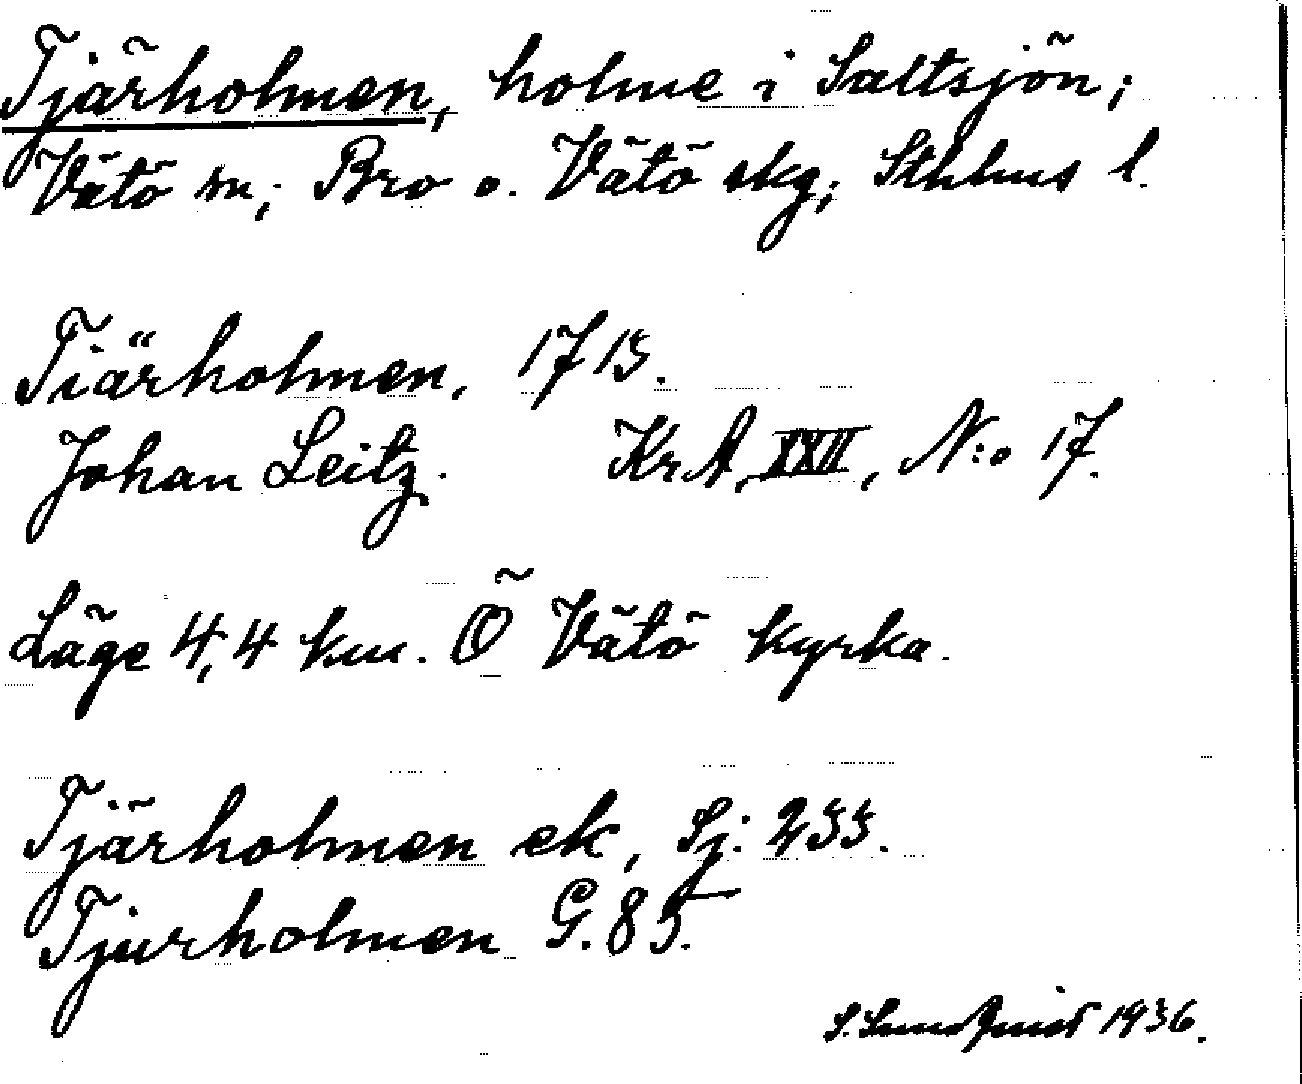 Tjärholmen, holme i Saltsjön;
Vätö sn; Bro o. Vätö skg; Sthlms l.
Tiärholmen, 1713.
Johan Leitz. KrA, XXII, N:o 17.
Läge 4,4 km. Ö Vätö kyrka.
Tjärholmen ek, Sj: 233.
Tjurholmen G. 85.
S. Sundqvist 1936.